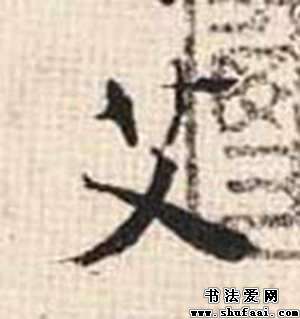 艾
书法爱网
http://www.shufaai.com